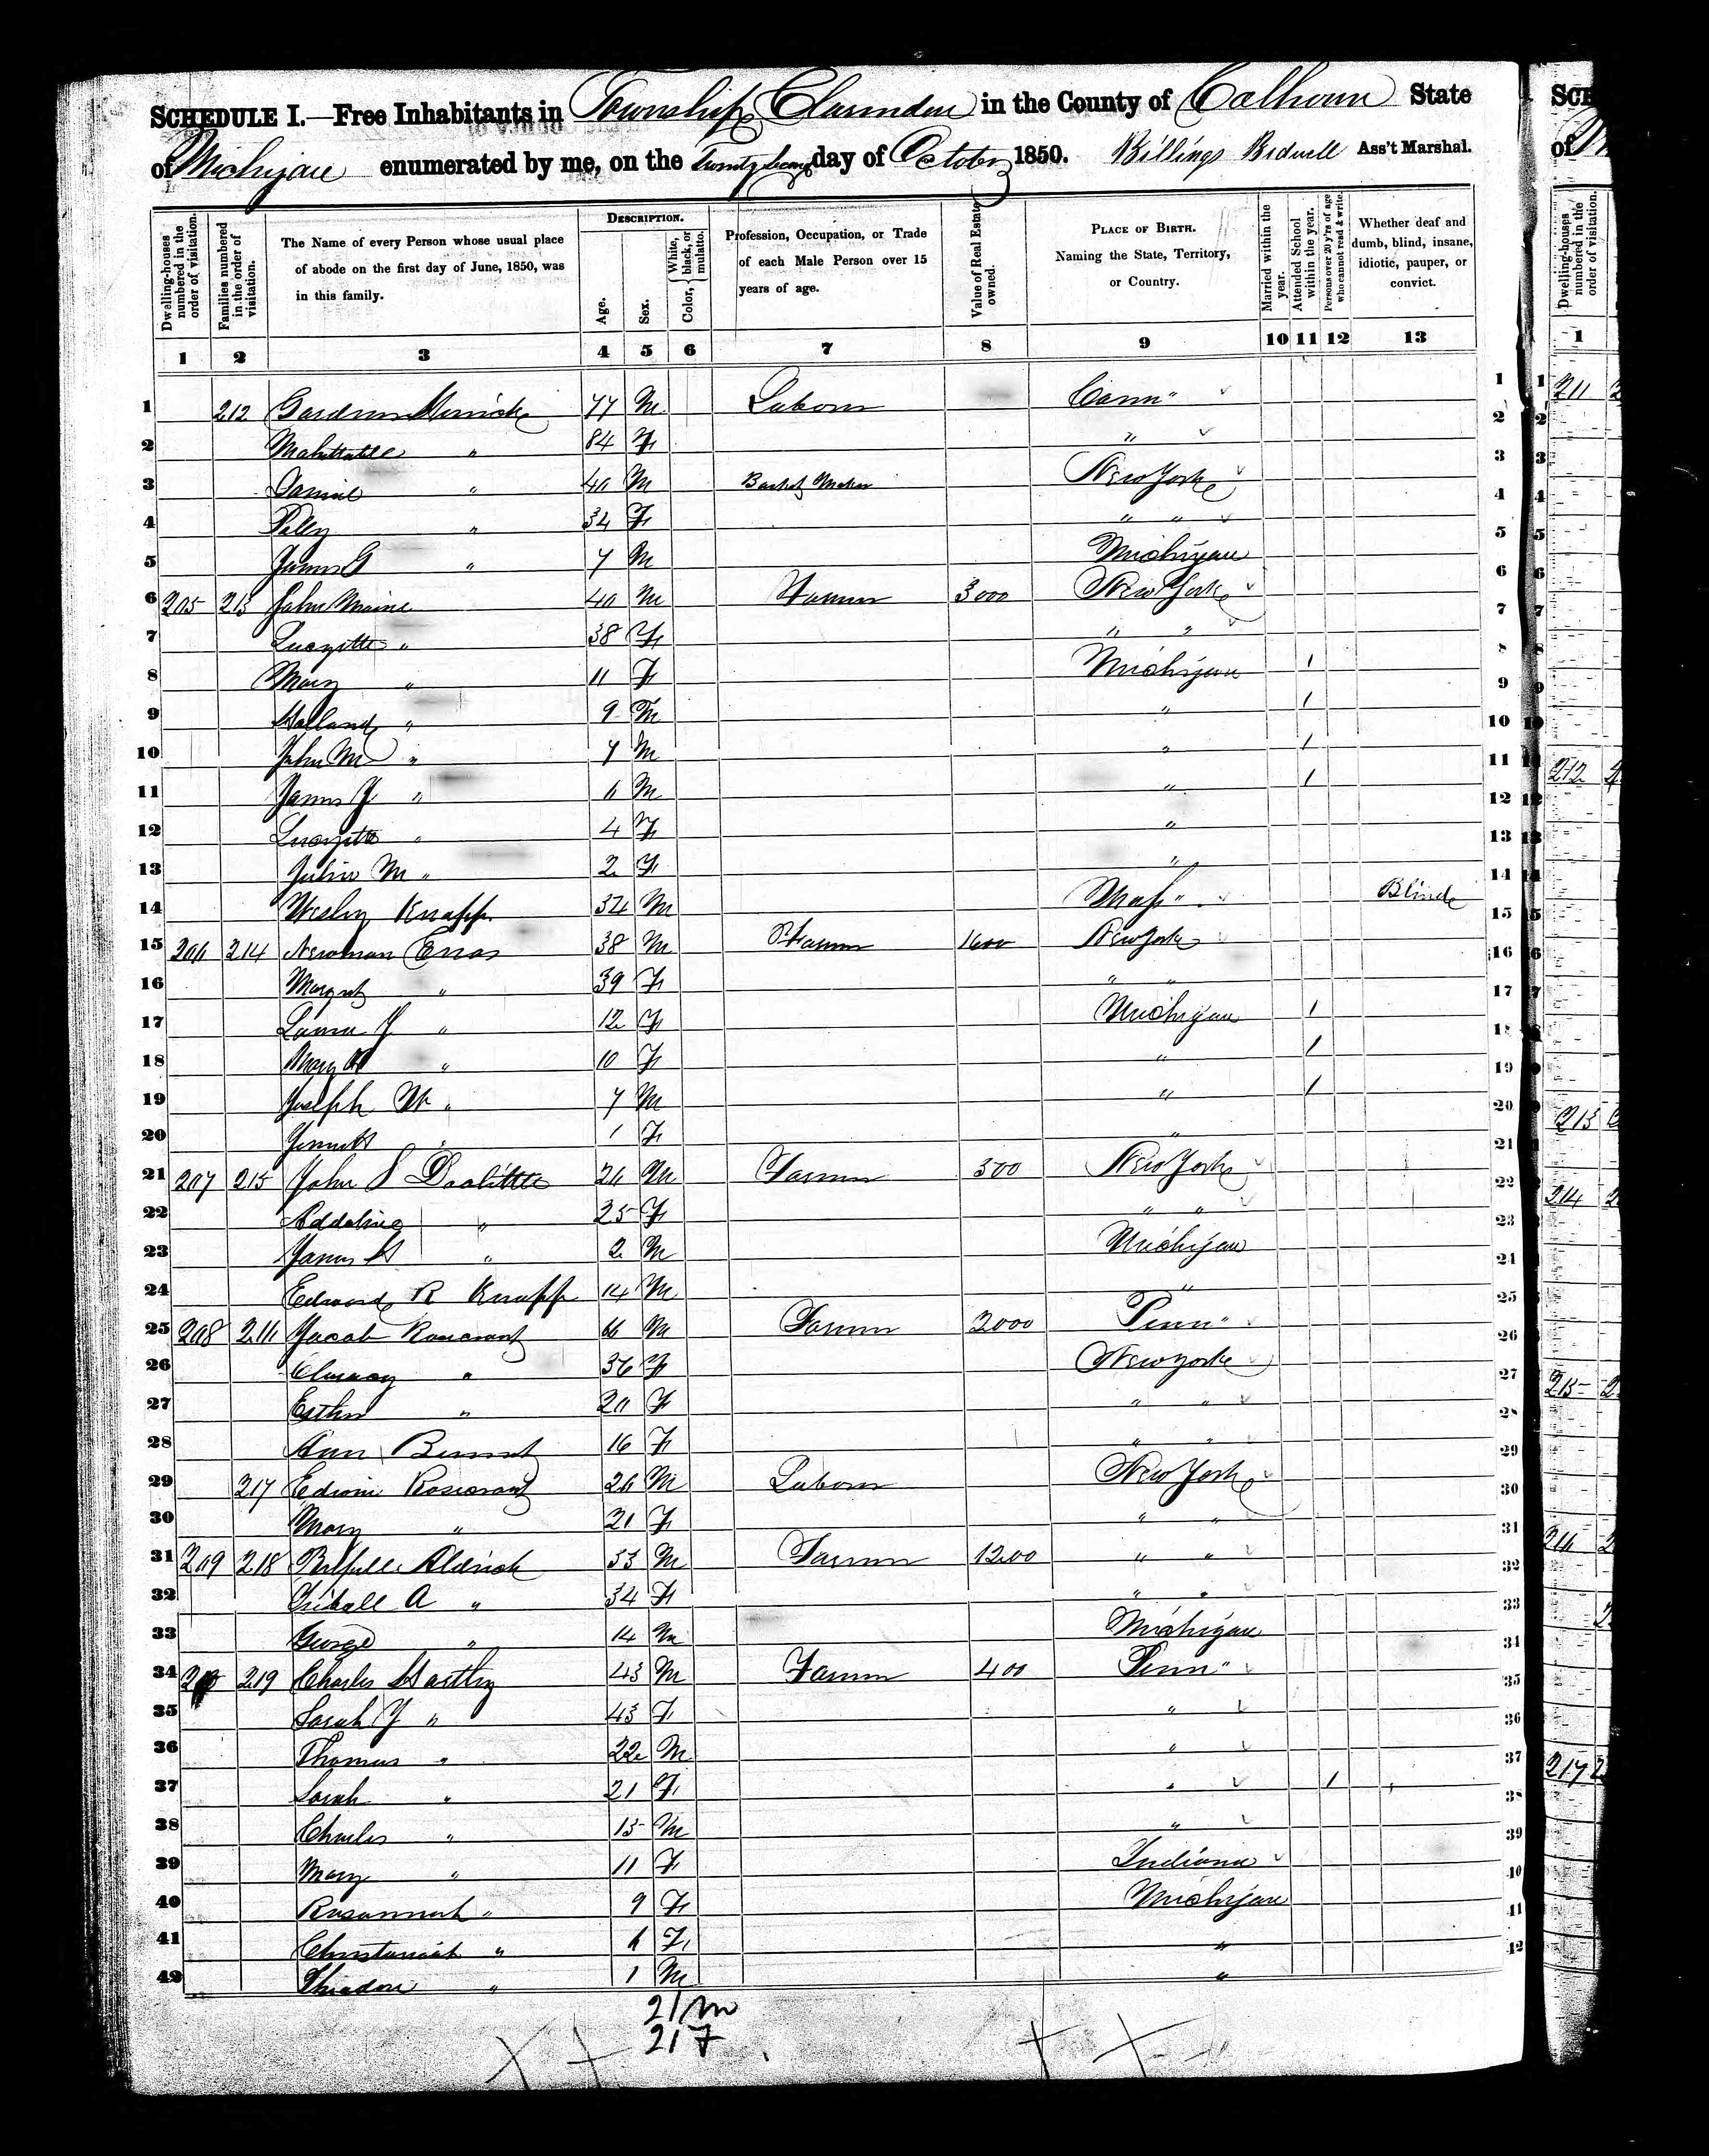 SCHEDULE I.—Free Inhabitants in Township Clarendon in the County of Calhoun State
of Michigan enumerated by me, on the day of October 1850. Billings Bidwell Ass't Marshal.
Dwelling-houses numbered in the order of visitation.
Families numbered in the order of visitation.
The Name of every Person whose usual place of abode on the first day of June, 1850, was in this family.
DESCRIPTION.
Age.
Sex.
Color, White, black, or mulatto.
Profession, Occupation, or Trade of each Male Person over 15 years of age.
Value of Real Estate owned.
PLACE OF BIRTH. Naming the State, Territory, or Country.
Married within the year.
Attended School within the year.
Persons over 20 y'rs of age who cannot read & write.
Whether deaf and dumb, blind, insane, idiotic, pauper, or convict.
1 2 3 4 5 6 7 8 9 10 11 12 13
1 212 77 M Laborer Conn" 1
2 " 84 F " 2
3 Daniel " 40 M Basket Maker New York 3
4 Polly " 34 F " " 4
5 James G " 7 M Michigan 5
6 205 213 John Maine 40 M Farmer 3000 New York 6
7 Lucyette " 38 F " " 7
8 Mary " 11 F Michigan 1 8
9 Holland " 9 M " 1 9
10 John M " 7 M " 1 10
11 James J " 6 M " 1 11
12 Lucyette " 4 F " 12
13 M " 2 F " 13
14 Wesley Knapp 34 M Mass" Blind 14
15 206 214 Newman Enos 38 M Farmer 1600 New York 15
16 Margret " 39 F " " 16
17 Laura J " 12 F Michigan 1 17
18 Mary " 10 F " 1 18
19 Joseph W " 7 M " 1 19
20 " 1 F " 20
21 207 215 John S Doolittle 26 M Farmer 300 New York 21
22 Addaline " 25 F " " 22
23 James H " 2 M Michigan 23
24 Edward R Knapp 14 M " 24
25 208 216 Jacob Rosecrantz 66 M Farmer 2000 Penn" 25
26 " 36 F New York 26
27 Esther " 20 F " " 27
28 Ann 16 F " " 28
29 217 Edwin Rosecrantz 26 M Laborer New York 29
30 Mary " 21 F " " 30
31 209 218 Aldrich 33 M Farmer 1200 " " 31
32 A " 34 F " " 32
33 George " 14 M Michigan 33
34 210 219 Charles Hartley 43 M Farmer 400 Penn" 34
35 Sarah J " 43 F " 35
36 Thomas " 22 M " 36
37 Sarah " 21 F " 1 37
38 Charles " 15 M " 38
39 Mary " 11 F Indiana 39
40 Rosannah " 9 F Michigan 40
41 " 6 F " 41
42 " 1 M " 42
21 M
21 F